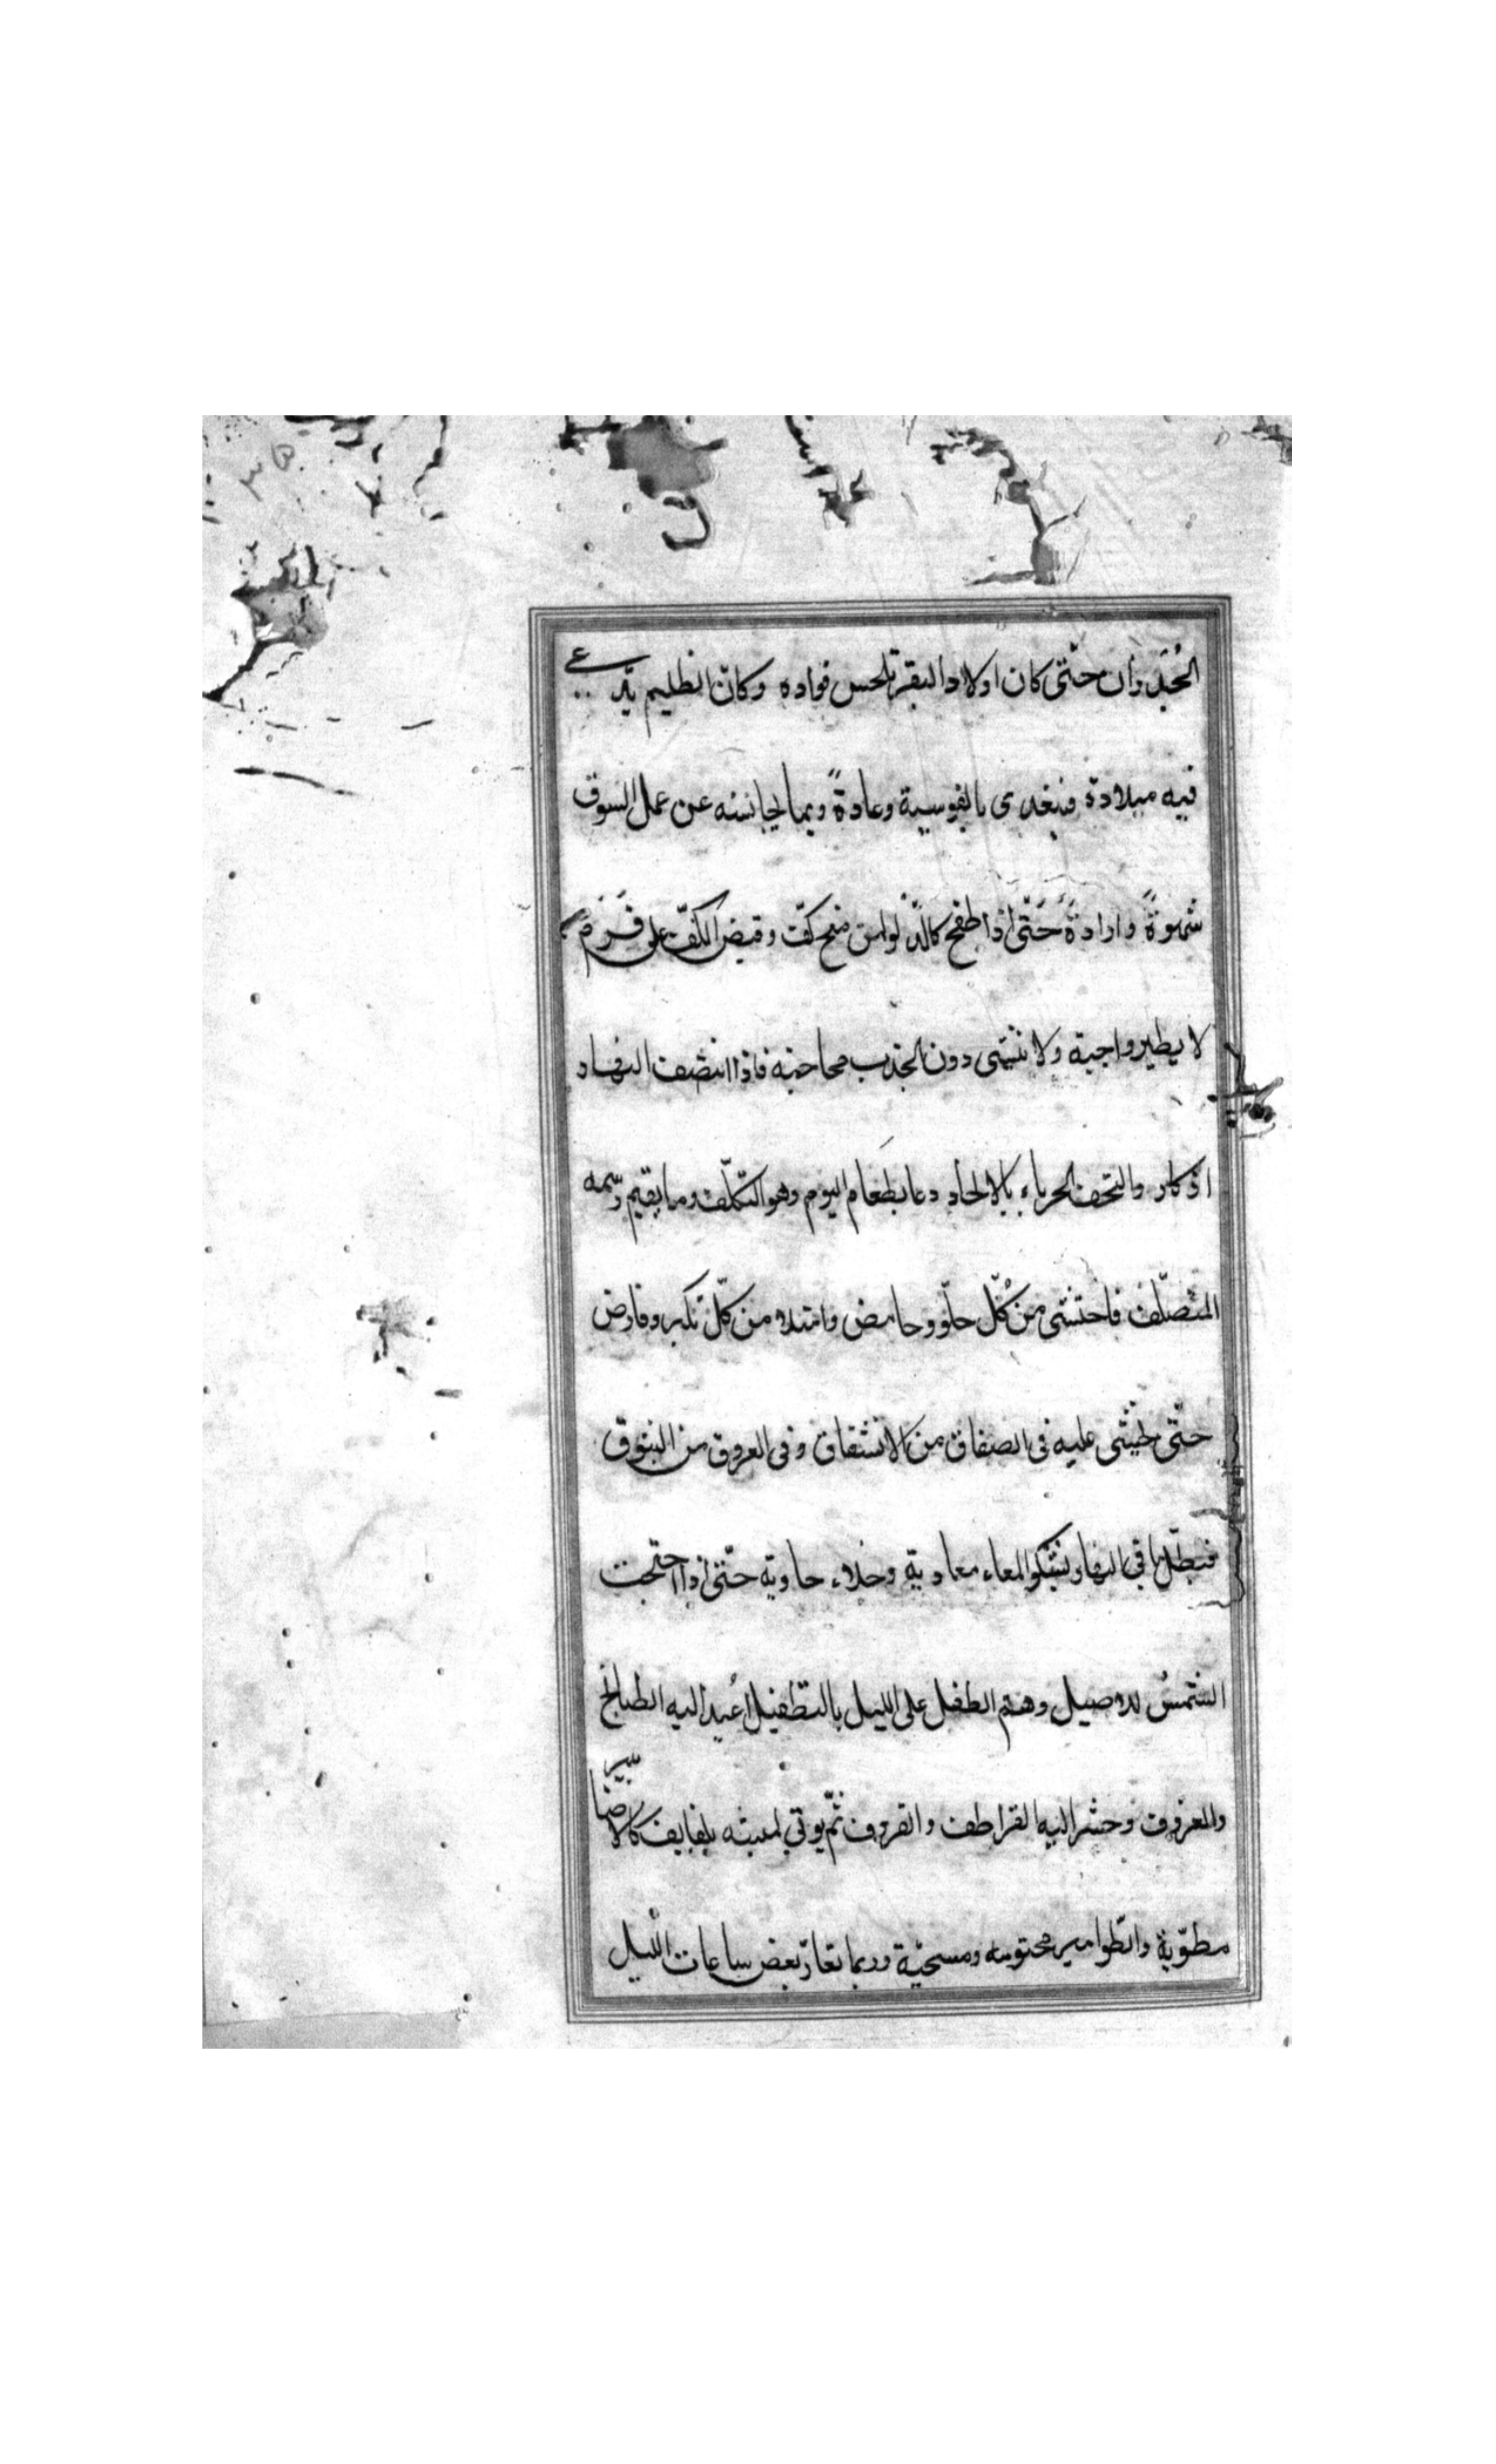 حتّى كان اولاد البقر تلحس فواده وكانّ الظليم
فيه ميلادة وعادةً وبما يجانسه عن عمل السوق
شهوةً وارادةً حَتّى اذا طفح كالدّلو وقبض الكفّ على
لا يطير واجبة ولا دون الجذب فاذا انتصف النهار
او كاد والتحف الحرباء بالالحاد دعا بطعام اليوم وهو التكلّف وما يقيم رسمه
المتصلّف فاحتشى من كُلّ حلو وحامض وامتلاء من كلّ
حتّى يخشى عليه فى الصفاق من الانشقاق وفى العروق من البثوق
باقى النهار يشكو المعاء معادية وخلاء حاوية حتّى اذا
الشمسُ للاصيل وهمّ الطفل على الليل بالتطفيل اُعيد اليه الطبالخ
والمعروق وحشر اليه القراطف والقروف ثمّ يوتى لمبيته بلفايف كالاضابير
مطوّية والطوامير مختومه ومسحيّة وربما تعارّ بعض ساعات الليل